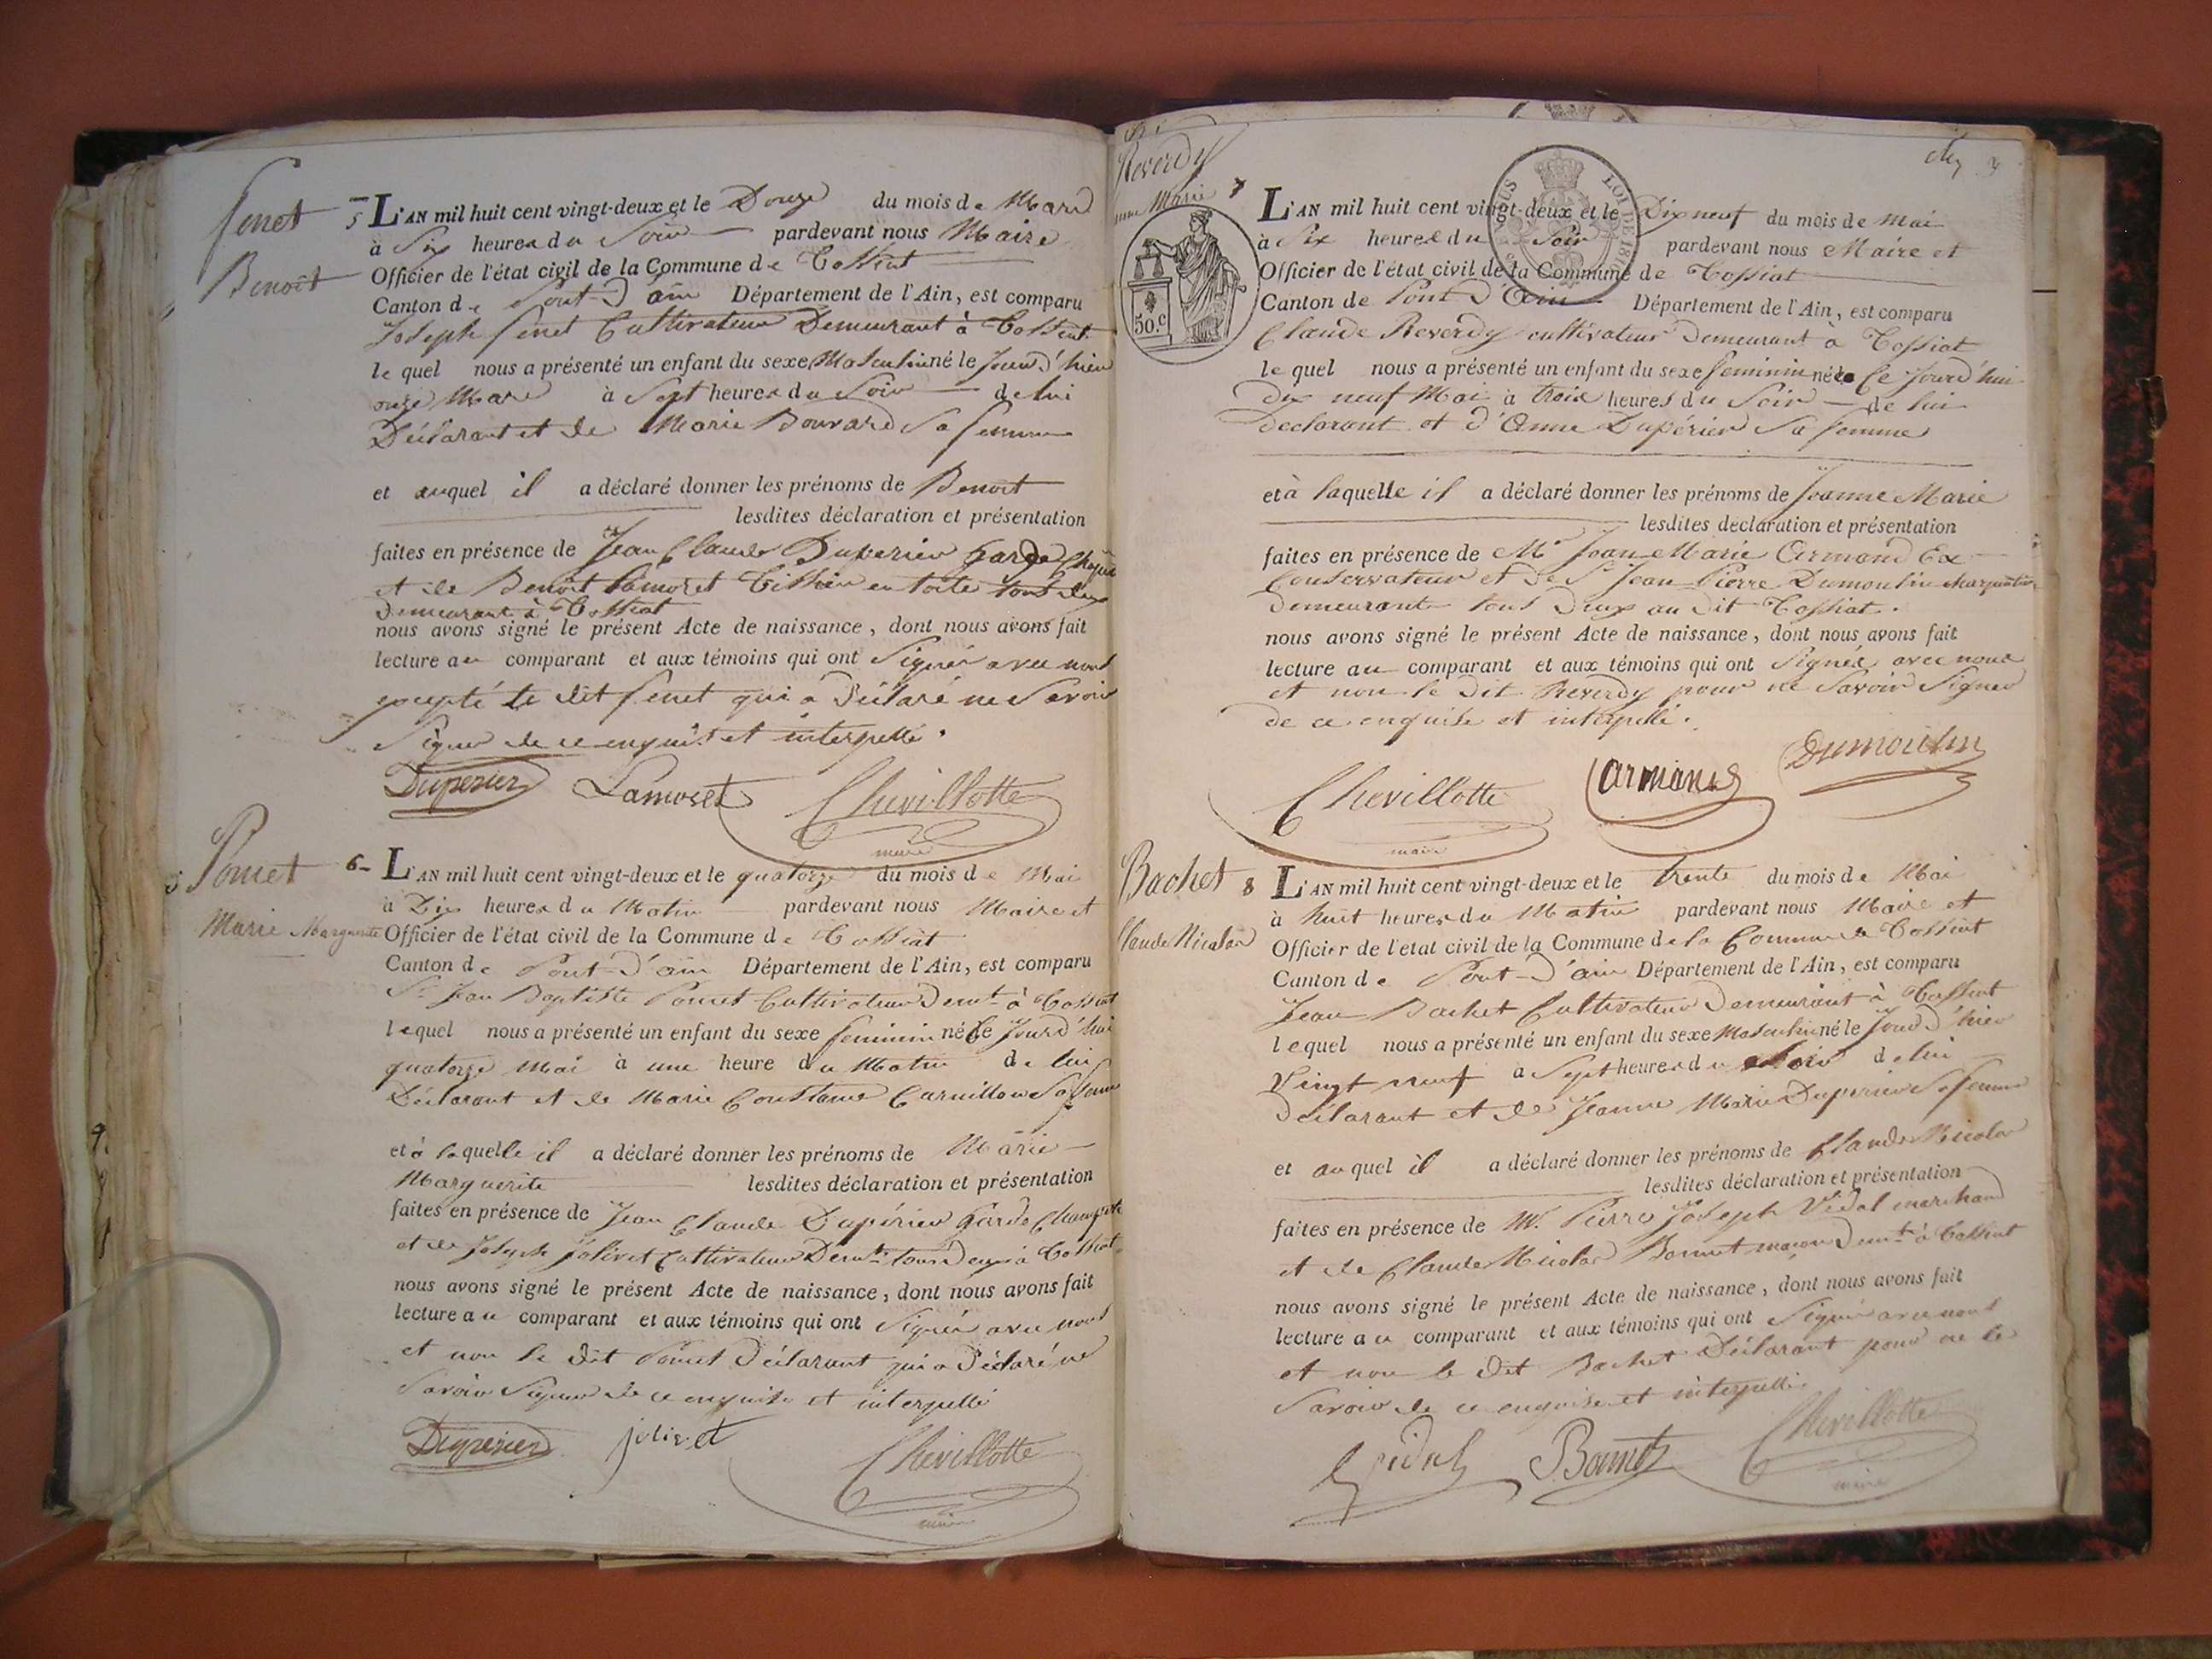 fenet
Benoit
5 L'AN mil huit cent vingt-deux et le Douze du mois de Mars
à Six heures du Soir pardevant nous Maire
Officier de l'état civil de la Commune de Tossiat
Canton de Pont-d'ain Département de l'Ain, est comparu
Joseph fenet Cultivateur Demeurant à Tossiat
lequel nous a présenté un enfant du sexe Masculin né le Jour d'hier
onze Mars à Sept heures du Soir de lui
Déclarant et de Marie Bouvard Sa femme
et auquel il a déclaré donner les prénoms de Benoit
lesdites déclaration et présentation
faites en présence de Jean Claude Duperier garde Champ
et de Benoit Lamoret Tissier en toile tous deux
Demeurant à Tossiat
nous avons signé le présent Acte de naissance, dont nous avons fait
lecture au comparant et aux témoins qui ont Signés avec nous
excepté le dit fenet qui a Déclaré ne Savoir
Signer de ce enquis et interpellé.
Duperier Lamoret Chevillotte
maire
Pomet
Marie Marguerite
6 L'AN mil huit cent vingt-deux et le quatorze du mois de Mai
à Dix heures du Matin pardevant nous Maire et
Officier de l'état civil de la Commune de Tossiat
Canton de Pont-d'ain Département de l'Ain, est comparu
Sr Jean Baptiste Pomet Cultivateur Demt à Tossiat
lequel nous a présenté un enfant du sexe feminin né Ce Jourd'hui
quatorze Mai à une heure du Matin de lui
Déclarant et de Marie Constance Sa femme
et à laquelle il a déclaré donner les prénoms de Marie
Marguerite lesdites déclaration et présentation
faites en présence de Jean Claude Dupérier Garde Champetre
et de Joseph Jolivet Cultivateur Demt tous Deux à Tossiat
nous avons signé le présent Acte de naissance, dont nous avons fait
lecture au comparant et aux témoins qui ont Signés avec nous
et non le dit Pomet Déclarant qui a Déclaré ne
Savoir Signer de ce enquis et interpellé
Duperier jolivet Chevillotte
maire
Reverdy
Marie
50.c
LOI DE 1816
7 L'AN mil huit cent vingt-deux et le Dix neuf du mois de Mai
à Six heures du Soir pardevant nous Maire et
Officier de l'état civil de la Commune de Tossiat
Canton de Pont d'Ain Département de l'Ain, est comparu
Claude Reverdy cultivateur Demeurant à Tossiat
lequel nous a présenté un enfant du sexe feminin née Ce Jourd'hui
dix neuf Mai à trois heures du Soir de lui
declarant et d'Anne Duperier Sa femme
et à laquelle il a déclaré donner les prénoms de Jeanne Marie
lesdites déclaration et présentation
faites en présence de Mr Jean Marie Armand Ex
Conservateur et de Sr Jean Pierre Dumoulin charpentier
demeurants tous deux au dit Tossiat.
nous avons signé le présent Acte de naissance, dont nous avons fait
lecture au comparant et aux témoins qui ont Signés avec nous
et non le dit Reverdy pour ne Savoir Signer
de ce enquise et interpellé.
Chevillotte Armand Dumoulin
maire
Bachet
Claude Nicolas
8 L'AN mil huit cent vingt-deux et le trente du mois de Mai
à huit heures du Matin pardevant nous Maire et
Officier de l'état civil de la Commune de la Commune de Tossiat
Canton de Pont-d'ain Département de l'Ain, est comparu
Jean Bachet Cultivateur Demeurant à Tossiat
lequel nous a présenté un enfant du sexe Masculin né le Jour d'hier
Vingt neuf à Sept heures du Soir de lui
Déclarant et de Jeanne Marie Duperier Sa femme
et auquel il a déclaré donner les prénoms de Claude Nicolas
lesdites déclaration et présentation
faites en présence de M. Pierre Joseph Vidal marchand
et de Claude Nicolas Bonnet maçon Demt à Tossiat
nous avons signé le présent Acte de naissance, dont nous avons fait
lecture au comparant et aux témoins qui ont Signé avec nous
et non le dit Bachet Déclarant pour ne le
Savoir de ce enquise et interpellé
Vidal Bonnet Chevillotte
maire